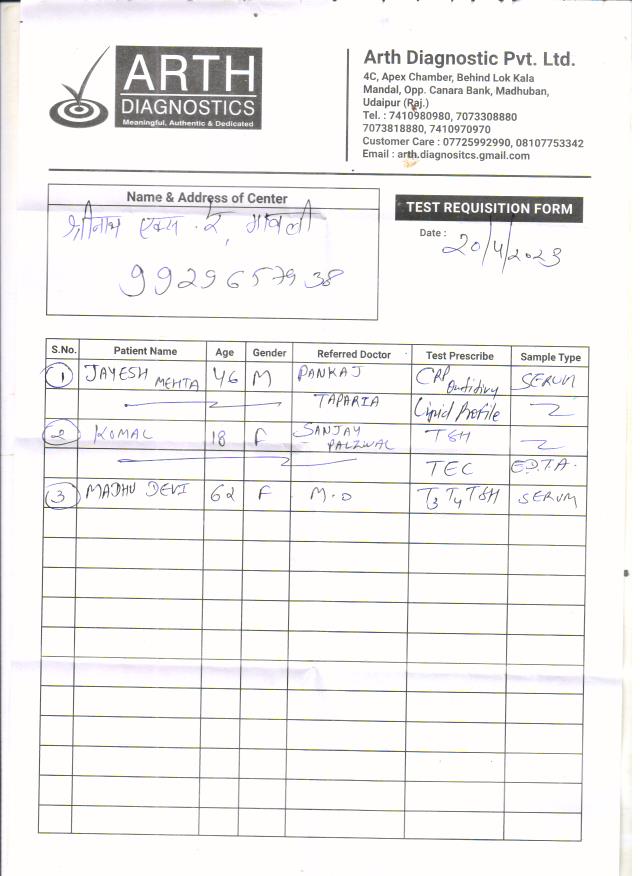 ARTH
DIAGNOSTICS
Meaningful, Authentic & Dedicated
Arth Diagnostic Pvt. Ltd.
4C, Apex Chamber, Behind Lok Kala
Mandal, Opp. Canara Bank, Madhuban,
Udaipur (Raj.)
Tel. : 7410980980, 7073308880
7073818880, 7410970970
Customer Care : 07725992990, 08107753342
Email : arth.diagnositcs.gmail.com
Name & Address of Center
श्रीनाथ एक्स.रे, मावली
9929657938
TEST REQUISITION FORM
Date : 20/4/2023
S.No. Patient Name Age Gender Referred Doctor Test Prescribe Sample Type
1 JAYESH MEHTA 46 M PANKAJ CRP SERUM
TAPARIA Lipid Profile
2 KOMAL 18 F SANJAY TSH
TEC E.D.T.A.
3 MADHU DEVI 62 F M.D T3 T4 TSH SERUM